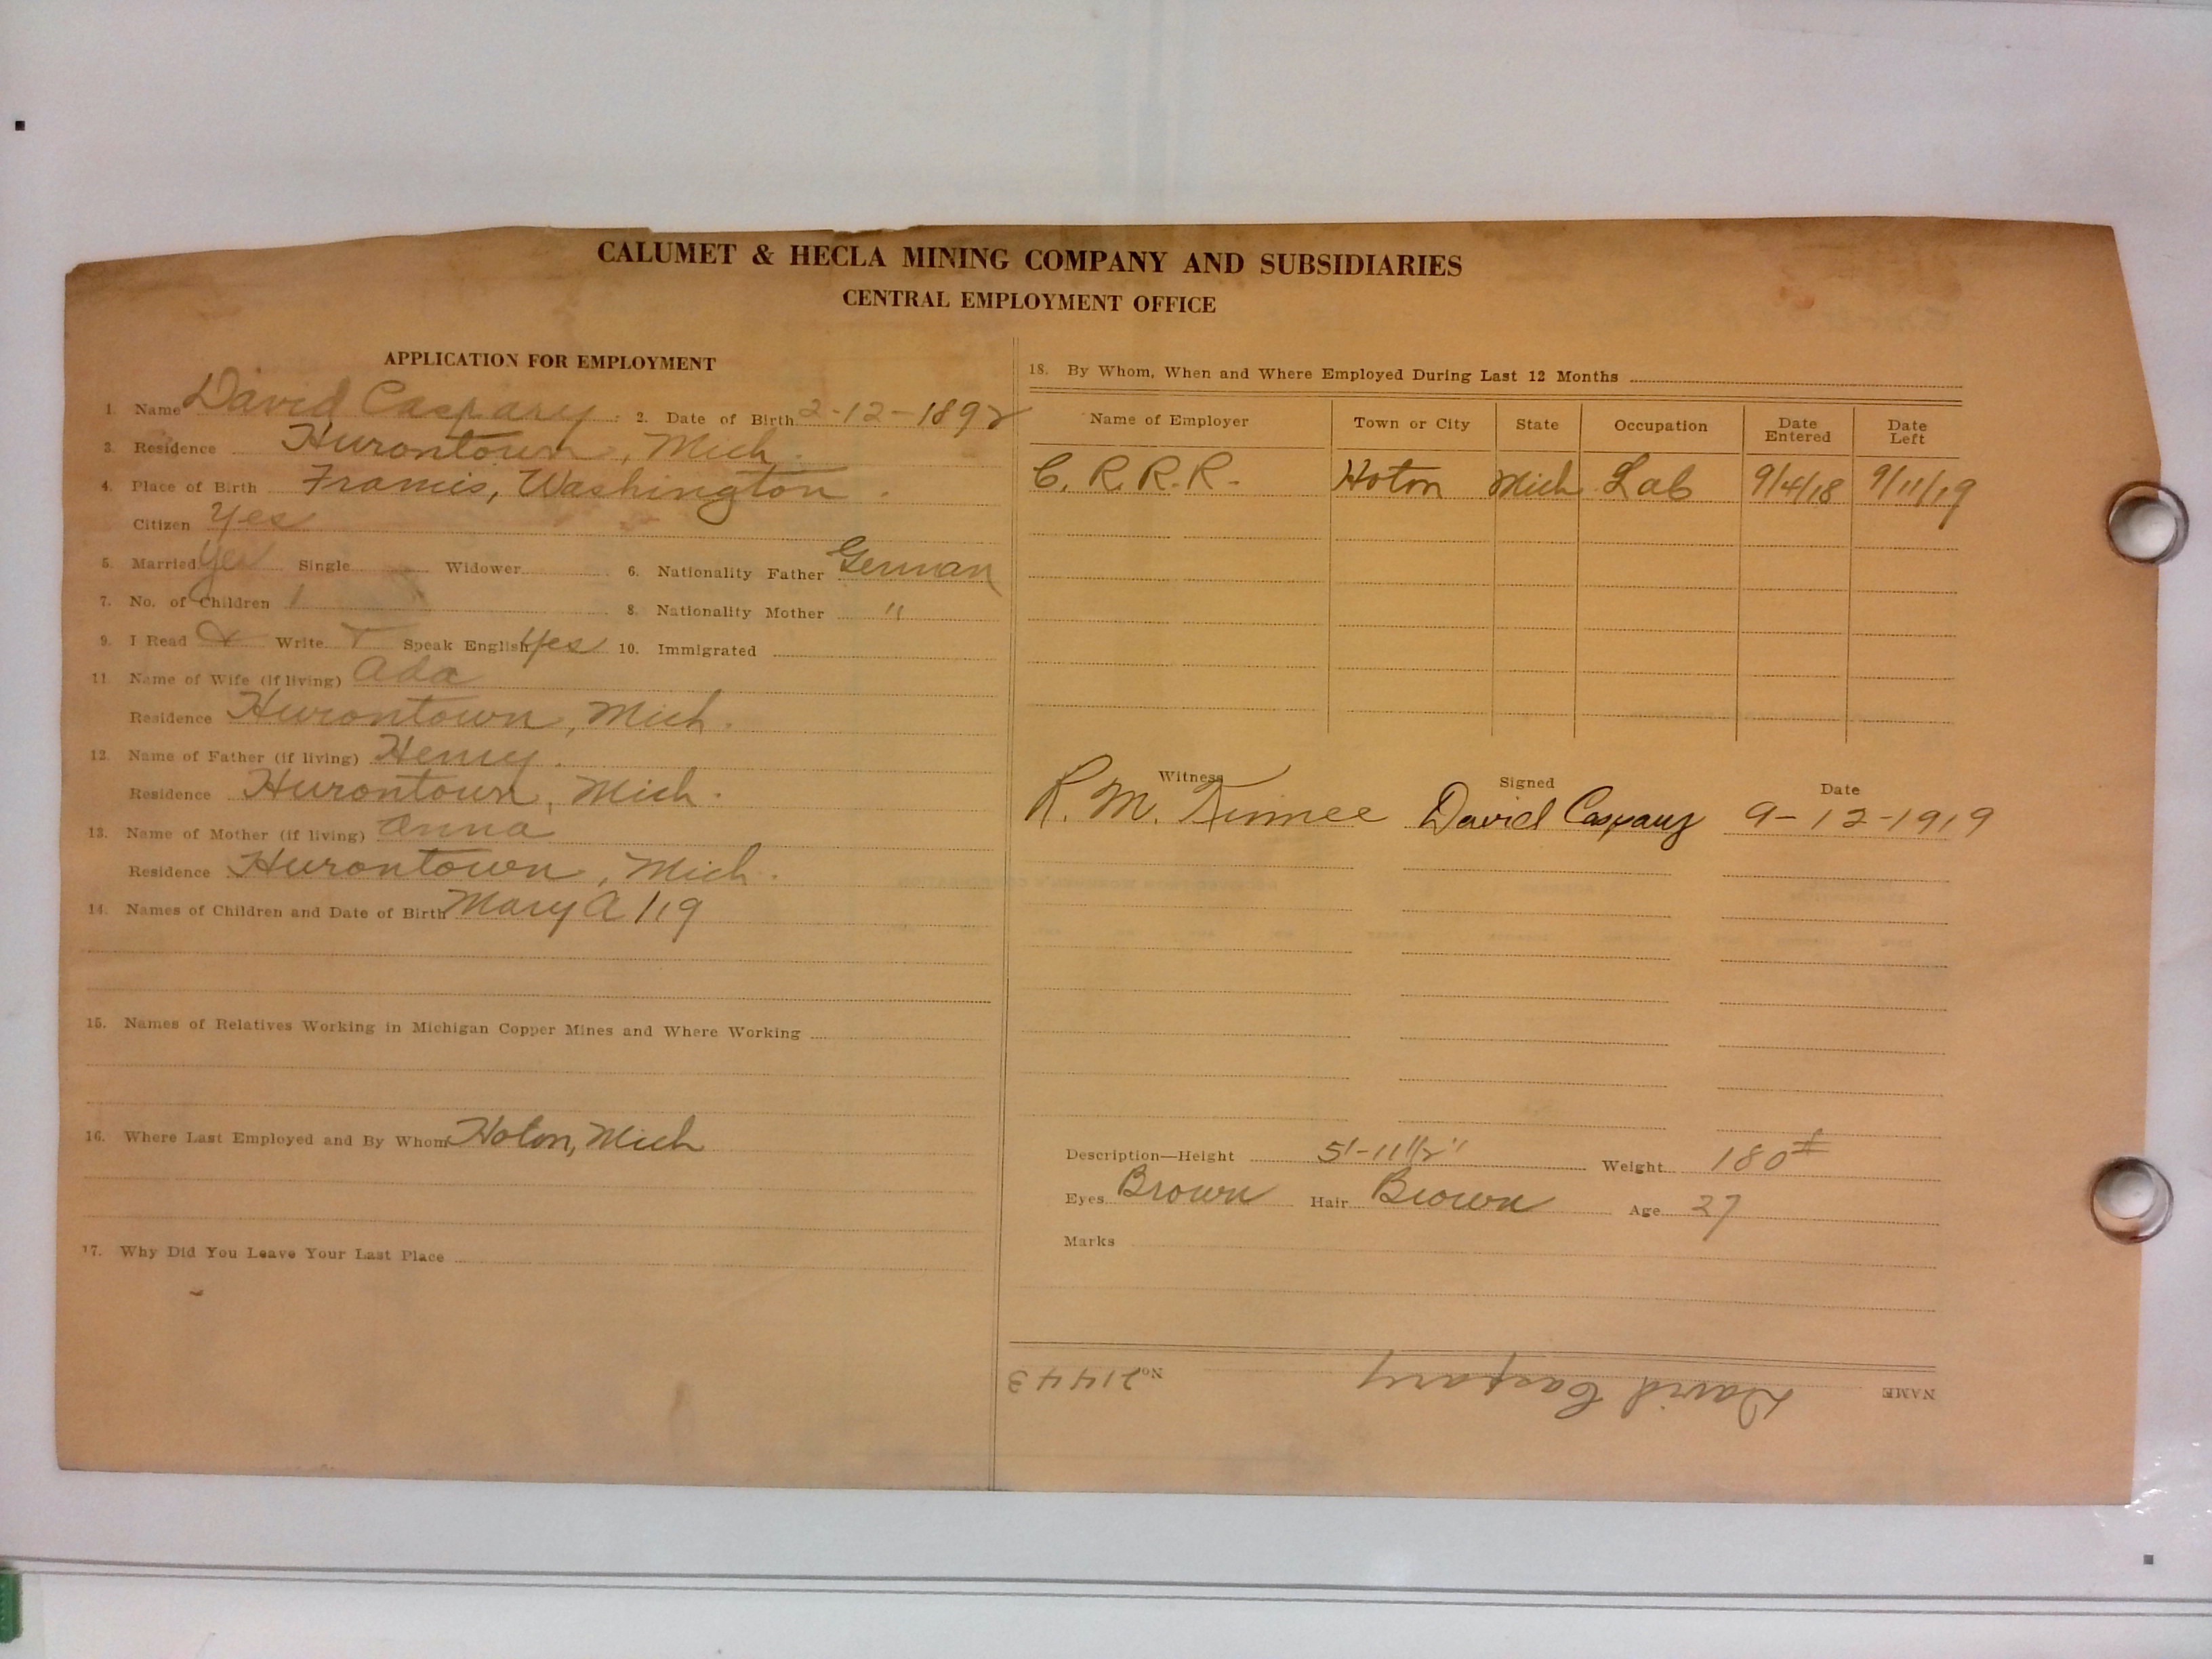 CALUMET & HECLA MINING COMPANY AND SUBSIDIARIES
CENTRAL EMPLOYMENT OFFICE
APPLICATION FOR EMPLOYMENT
1. Name David Caspary 2. Date of Birth 2-12-1892
3. Residence Hurontown, Mich.
4. Place of Birth Francis, Washington.
Citizen Yes
5. Married Yes Single Widower 6. Nationality Father German
7. No. of Children 1 8. Nationality Mother "
9. I Read Write Speak English Yes 10. Immigrated
11. Name of Wife (if living) Ada
Residence Hurontown, Mich.
12. Name of Father (if living) Henry.
Residence Hurontown, Mich.
13. Name of Mother (if living) Anna
Residence Hurontown, Mich.
14. Names of Children and Date of Birth Mary A 1/19
15. Names of Relatives Working in Michigan Copper Mines and Where Working
16. Where Last Employed and By Whom Hoton, Mich
17. Why Did You Leave Your Last Place
18. By Whom, When and Where Employed During Last 12 Months
Name of Employer Town or City State Occupation Date Entered Date Left
C. R. R. R. Hoton Mich Lab 9/4/18 9/11/19
Witness Signed Date
R. M. David Caspary 9-12-1919
Description—Height 5'-11 1/2" Weight 180#
Eyes Brown Hair Brown Age 27
Marks
NAME David Caspary No. 21443